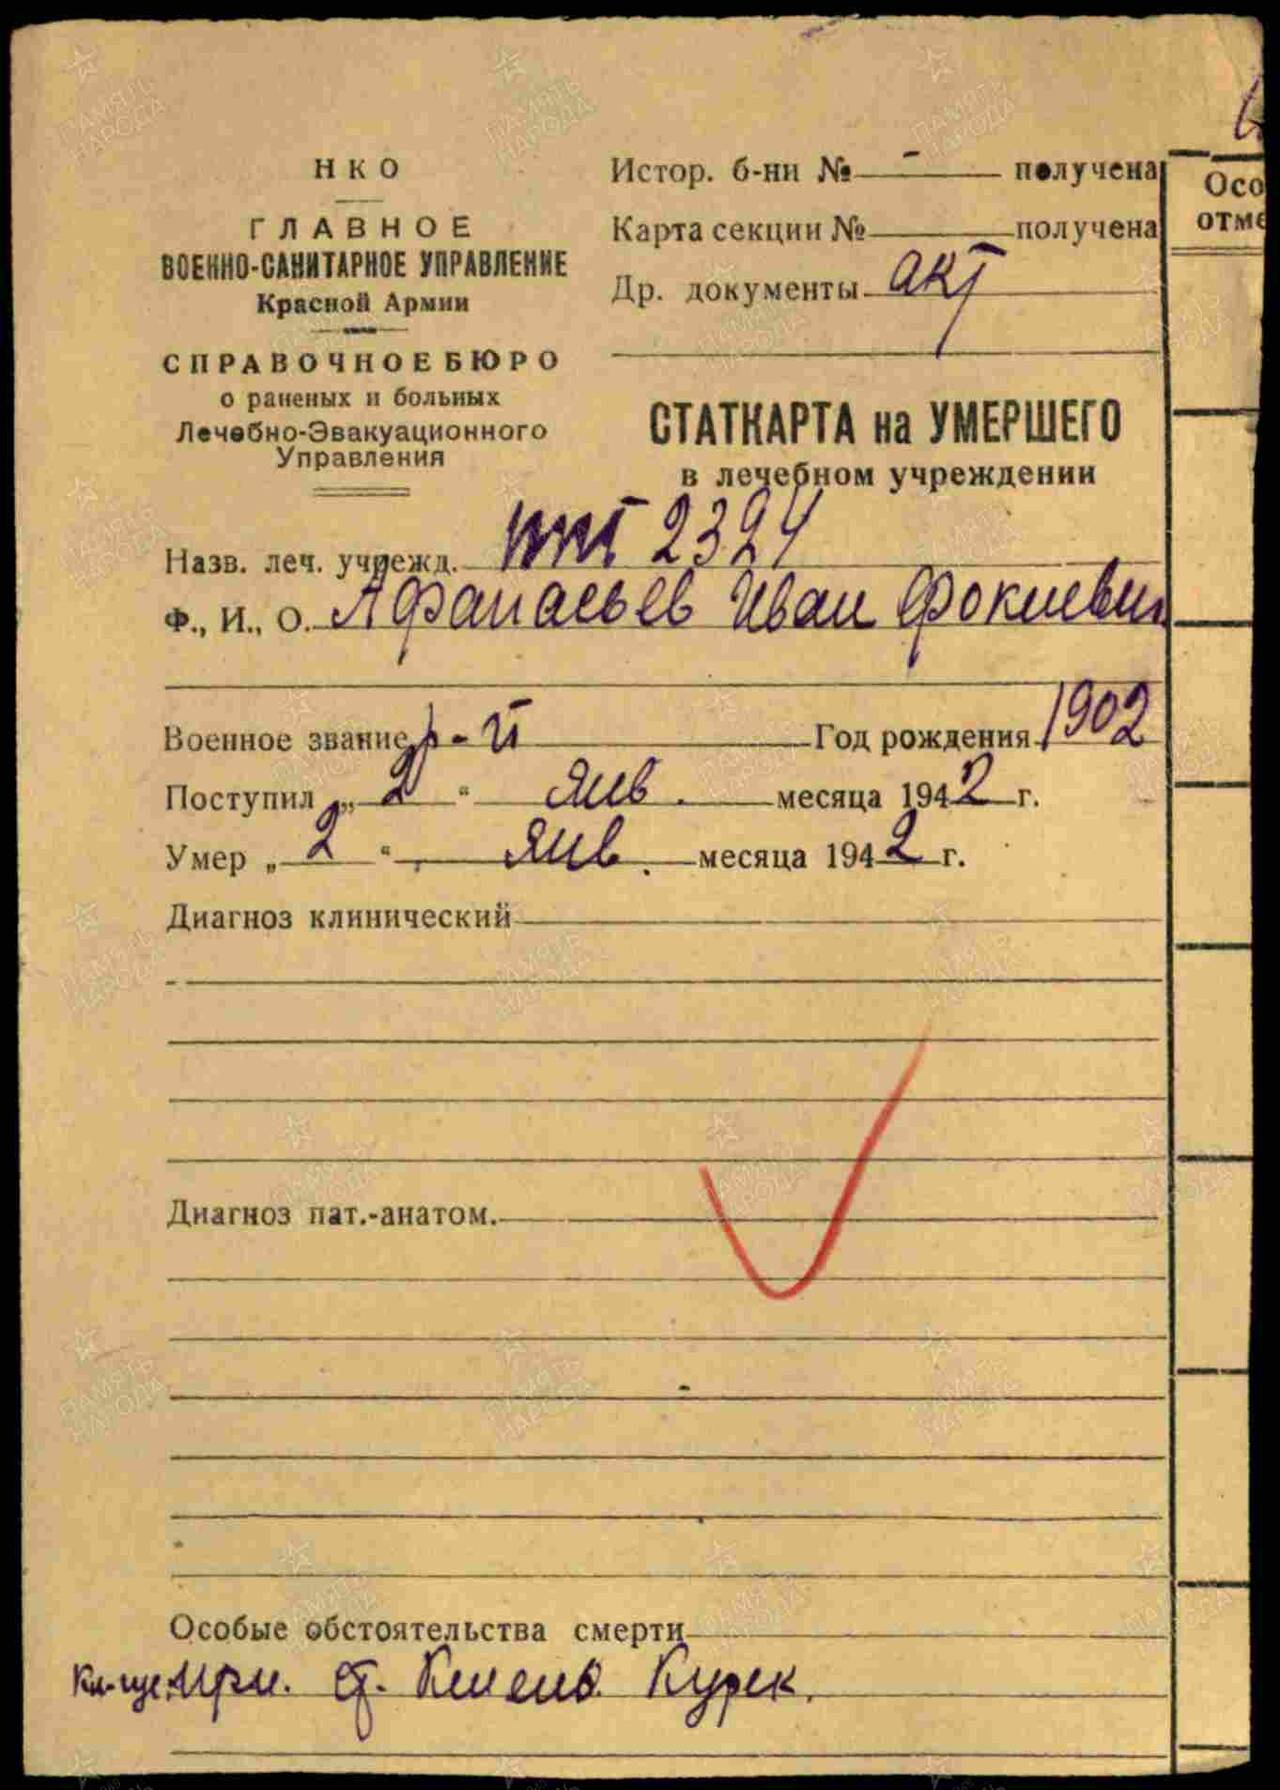 НКО
ГЛАВНОЕ
ВОЕННО-САНИТАРНОЕ УПРАВЛЕНИЕ
Красной Армии
СПРАВОЧНОЕ БЮРО
о раненых и больных
Лечебно-Эвакуационного
Управления
Истор. б-ни № - получена
Карта секции № получена
Др. документы акт
Осо
отме
СТАТКАРТА на УМЕРШЕГО
в лечебном учреждении
Назв. леч. учрежд. ппг 2324
Ф., И., О. Афанасьев Иван Фокиевич
Военное звание р-й Год рождения 1902
Поступил „2“ янв. месяца 1942 г.
Умер „2“ янв. месяца 1942 г.
Диагноз клинический
Диагноз пат.-анатом.
Особые обстоятельства смерти
при. ст. Курск.
ПАМЯТЬ НАРОДА